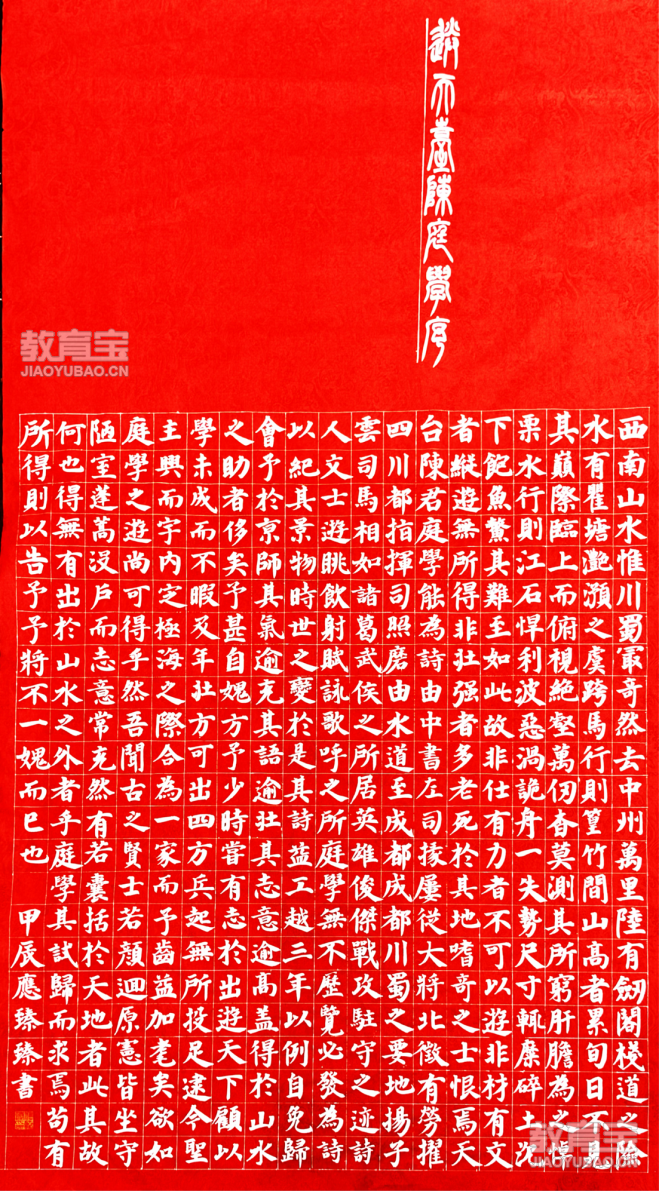 送天臺陳庭學序
西南山水惟川蜀冣奇然去中州萬里陸有劔閣棧道之險
水有瞿塘灔澦之虞跨馬行則篁竹間山高者累旬日不見
其巔際臨上而俯視絶壑萬仞杳莫測其所窮肝膽為之悼
栗水行則江石悍利波惡渦詭舟一失勢尺寸輒糜碎土沉
下飽魚鱉其難至如此故非仕有力者不可以遊非材有文
者縱遊無所得非壯强者多老死於其地嗜奇之士恨焉天
台陳君庭學能為詩由中書左司掾屢從大將北徵有勞擢
四川都指揮司照磨由水道至成都成都川蜀之要地揚子
雲司馬相如諸葛武侯之所居英雄俊傑戰攻駐守之迹詩
人文士遊眺飲射賦詠歌呼之所庭學無不歷覽必發為詩
以紀其景物時世之變於是其詩益工越三年以例自免歸
會予於京師其氣逾充其語逾壯其志意逾高蓋得於山水
之助者侈矣予甚自媿方予少時嘗有志於出遊天下顧以
學未成而不暇及年壯方可出四方兵起無所投足逮今聖
主興而宇内定極海之際合為一家而予齒益加耄矣欲如
庭學之遊尚可得乎然吾聞古之賢士若顔迴原憲皆坐守
陋室蓬蒿没戶而志意常充然有若囊括於天地者此其故
何也得無有出於山水之外者乎庭學其試歸而求焉苟有
所得則以告予予將不一媿而已也 甲辰應臻臻書
教育宝
JIAOYUBAO.CN
教育宝
JIAOYUBAO.CN